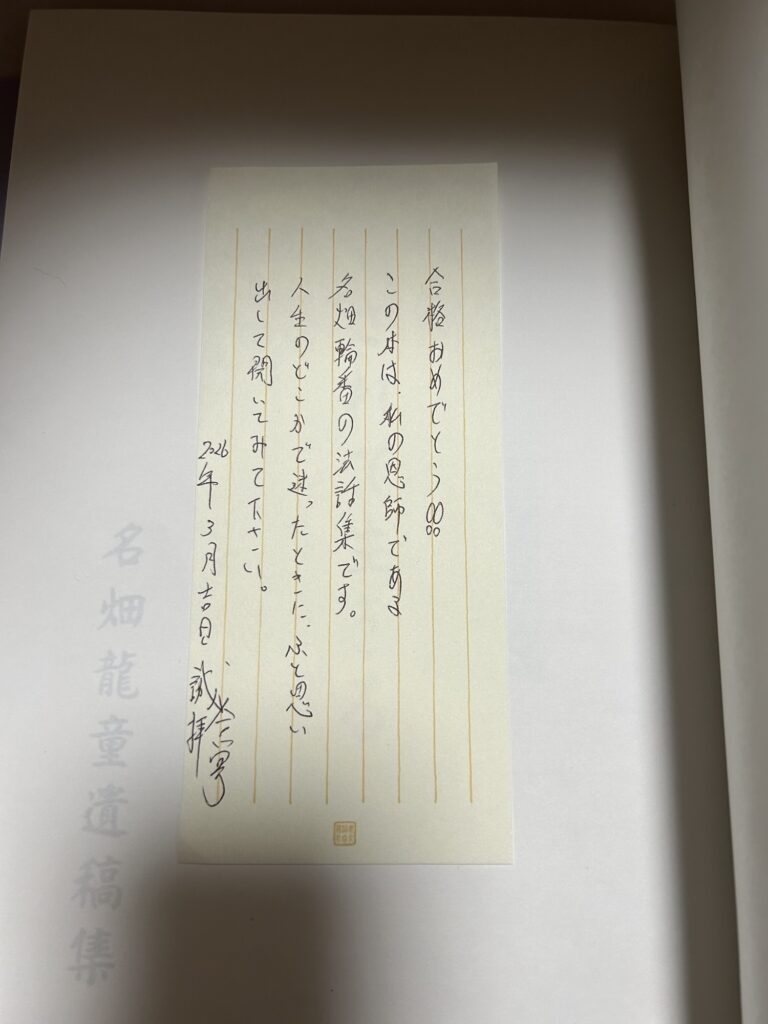 合格おめでとう
この本は、私の恩師である
名畑輪番の法話集です。
人生のどこかで迷ったときに、ふと思い
出して開いてみて下さい。
2026年3月吉日
誠
拝
名畑龍童遺稿集